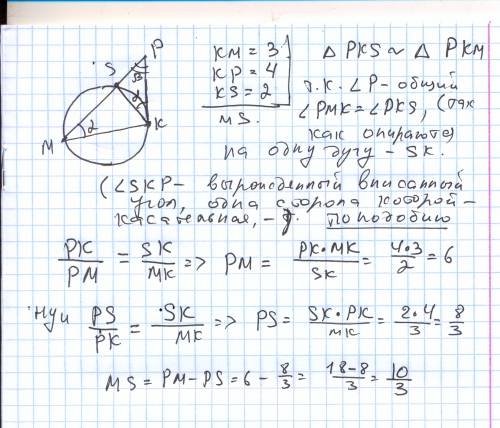 P
S
β
α
α
M
K
KM = 3
KP = 4
KS = 2
MS.
△ PKS ∼ △ PKM
т.к. ∠P - общий
∠PMK = ∠PKS, (так
как опираются
на одну дугу - SK.
(∠SKP - вырожденный вписанный
угол, одна сторона которой -
касательная, -
по подобию
PK/PM = SK/MK => PM = PK·MK/SK = 4·3/2 = 6
Ну и PS/PK = SK/MK => PS = SK·PK/MK = 2·4/3 = 8/3
MS = PM - PS = 6 - 8/3 = 18-8/3 = 10/3